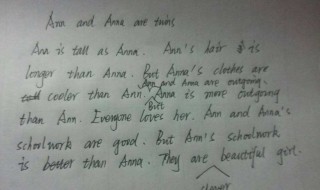 Ann and Anna are twins
Ana is tall as Anna. Ann's hair is
longer than Anna. But Anna's clothes are
Ann and Anna are outgoing.
cooler than Ann. Anna is more outgoing
But
than Ann. Everyone loves her. Ann and Anna's
schoolwork are good. But Ann's schoolwork
is better than Anna. They are beautiful girl.